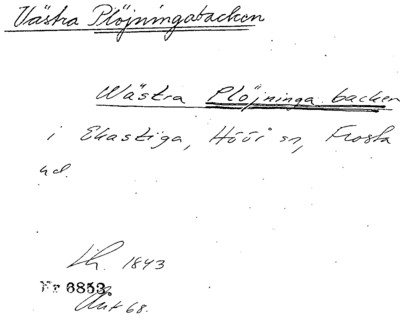 Västra Plöjningabacken
Wästra Plöjninga backen
i Ekastiga, Höör sn, Frosta
hd.
Lh. 1843
Nr 6853.
Ant 68.